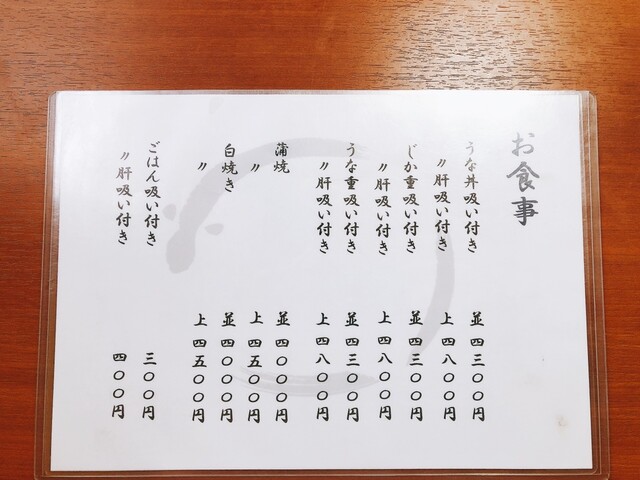 お食事
うな丼吸い付き 並 四三〇〇円
〃肝吸い付き 上 四八〇〇円
じか重吸い付き 並 四三〇〇円
〃肝吸い付き 上 四八〇〇円
うな重吸い付き 並 四三〇〇円
〃肝吸い付き 上 四八〇〇円
蒲焼 並 四〇〇〇円
〃 上 四五〇〇円
白焼き 並 四〇〇〇円
〃 上 四五〇〇円
ごはん吸い付き 三〇〇円
〃肝吸い付き 四〇〇円